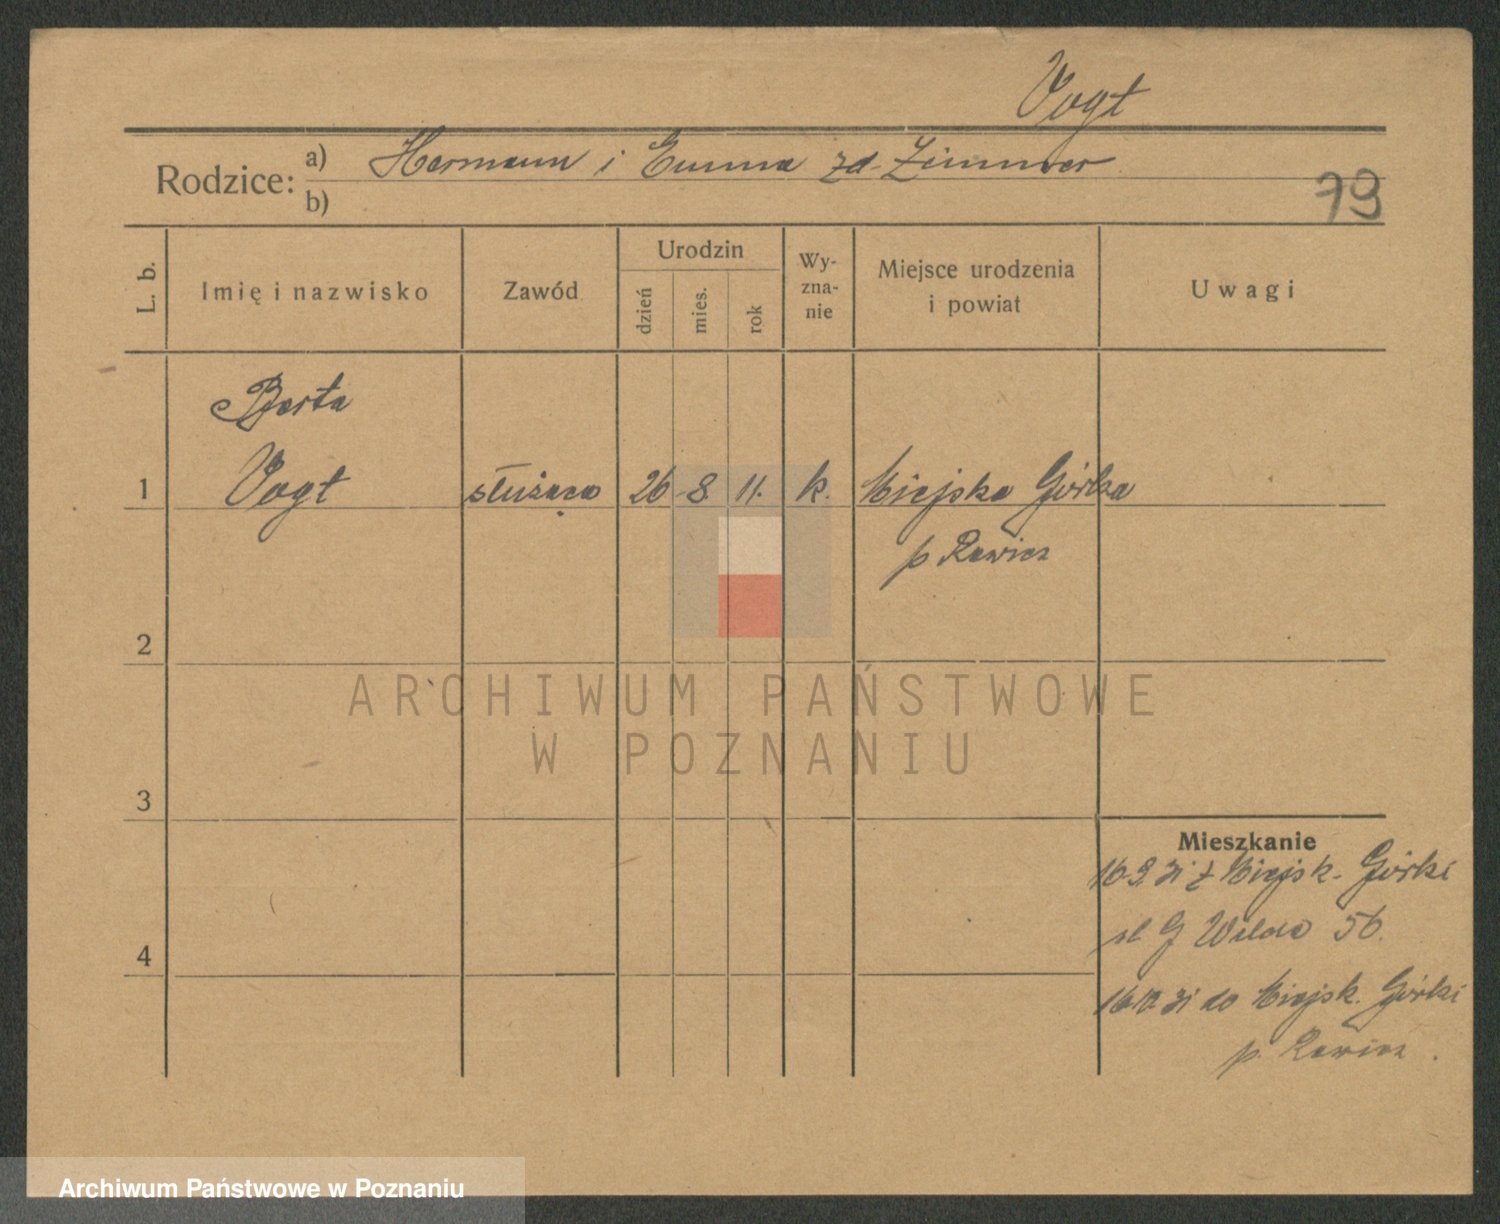 Vogt
Rodzice: a) Hermann i Emma zd. Zimmer
b)
79
L. b. Imię i nazwisko Zawód Urodzin dzień mies. rok Wy-zna-nie Miejsce urodzenia i powiat Uwagi
Berta
1 Vogt służąca 26 8. 11. k. Miejska Górka
p Rawicz
2
ARCHIWUM PAŃSTWOWE
W POZNANIU
3
Mieszkanie
16.9. 31 z Miejsk. Górki
G Wilda 56.
4
16.12. 31 do Miejsk. Górki
p. Rawicz.
Archiwum Państwowe w Poznaniu